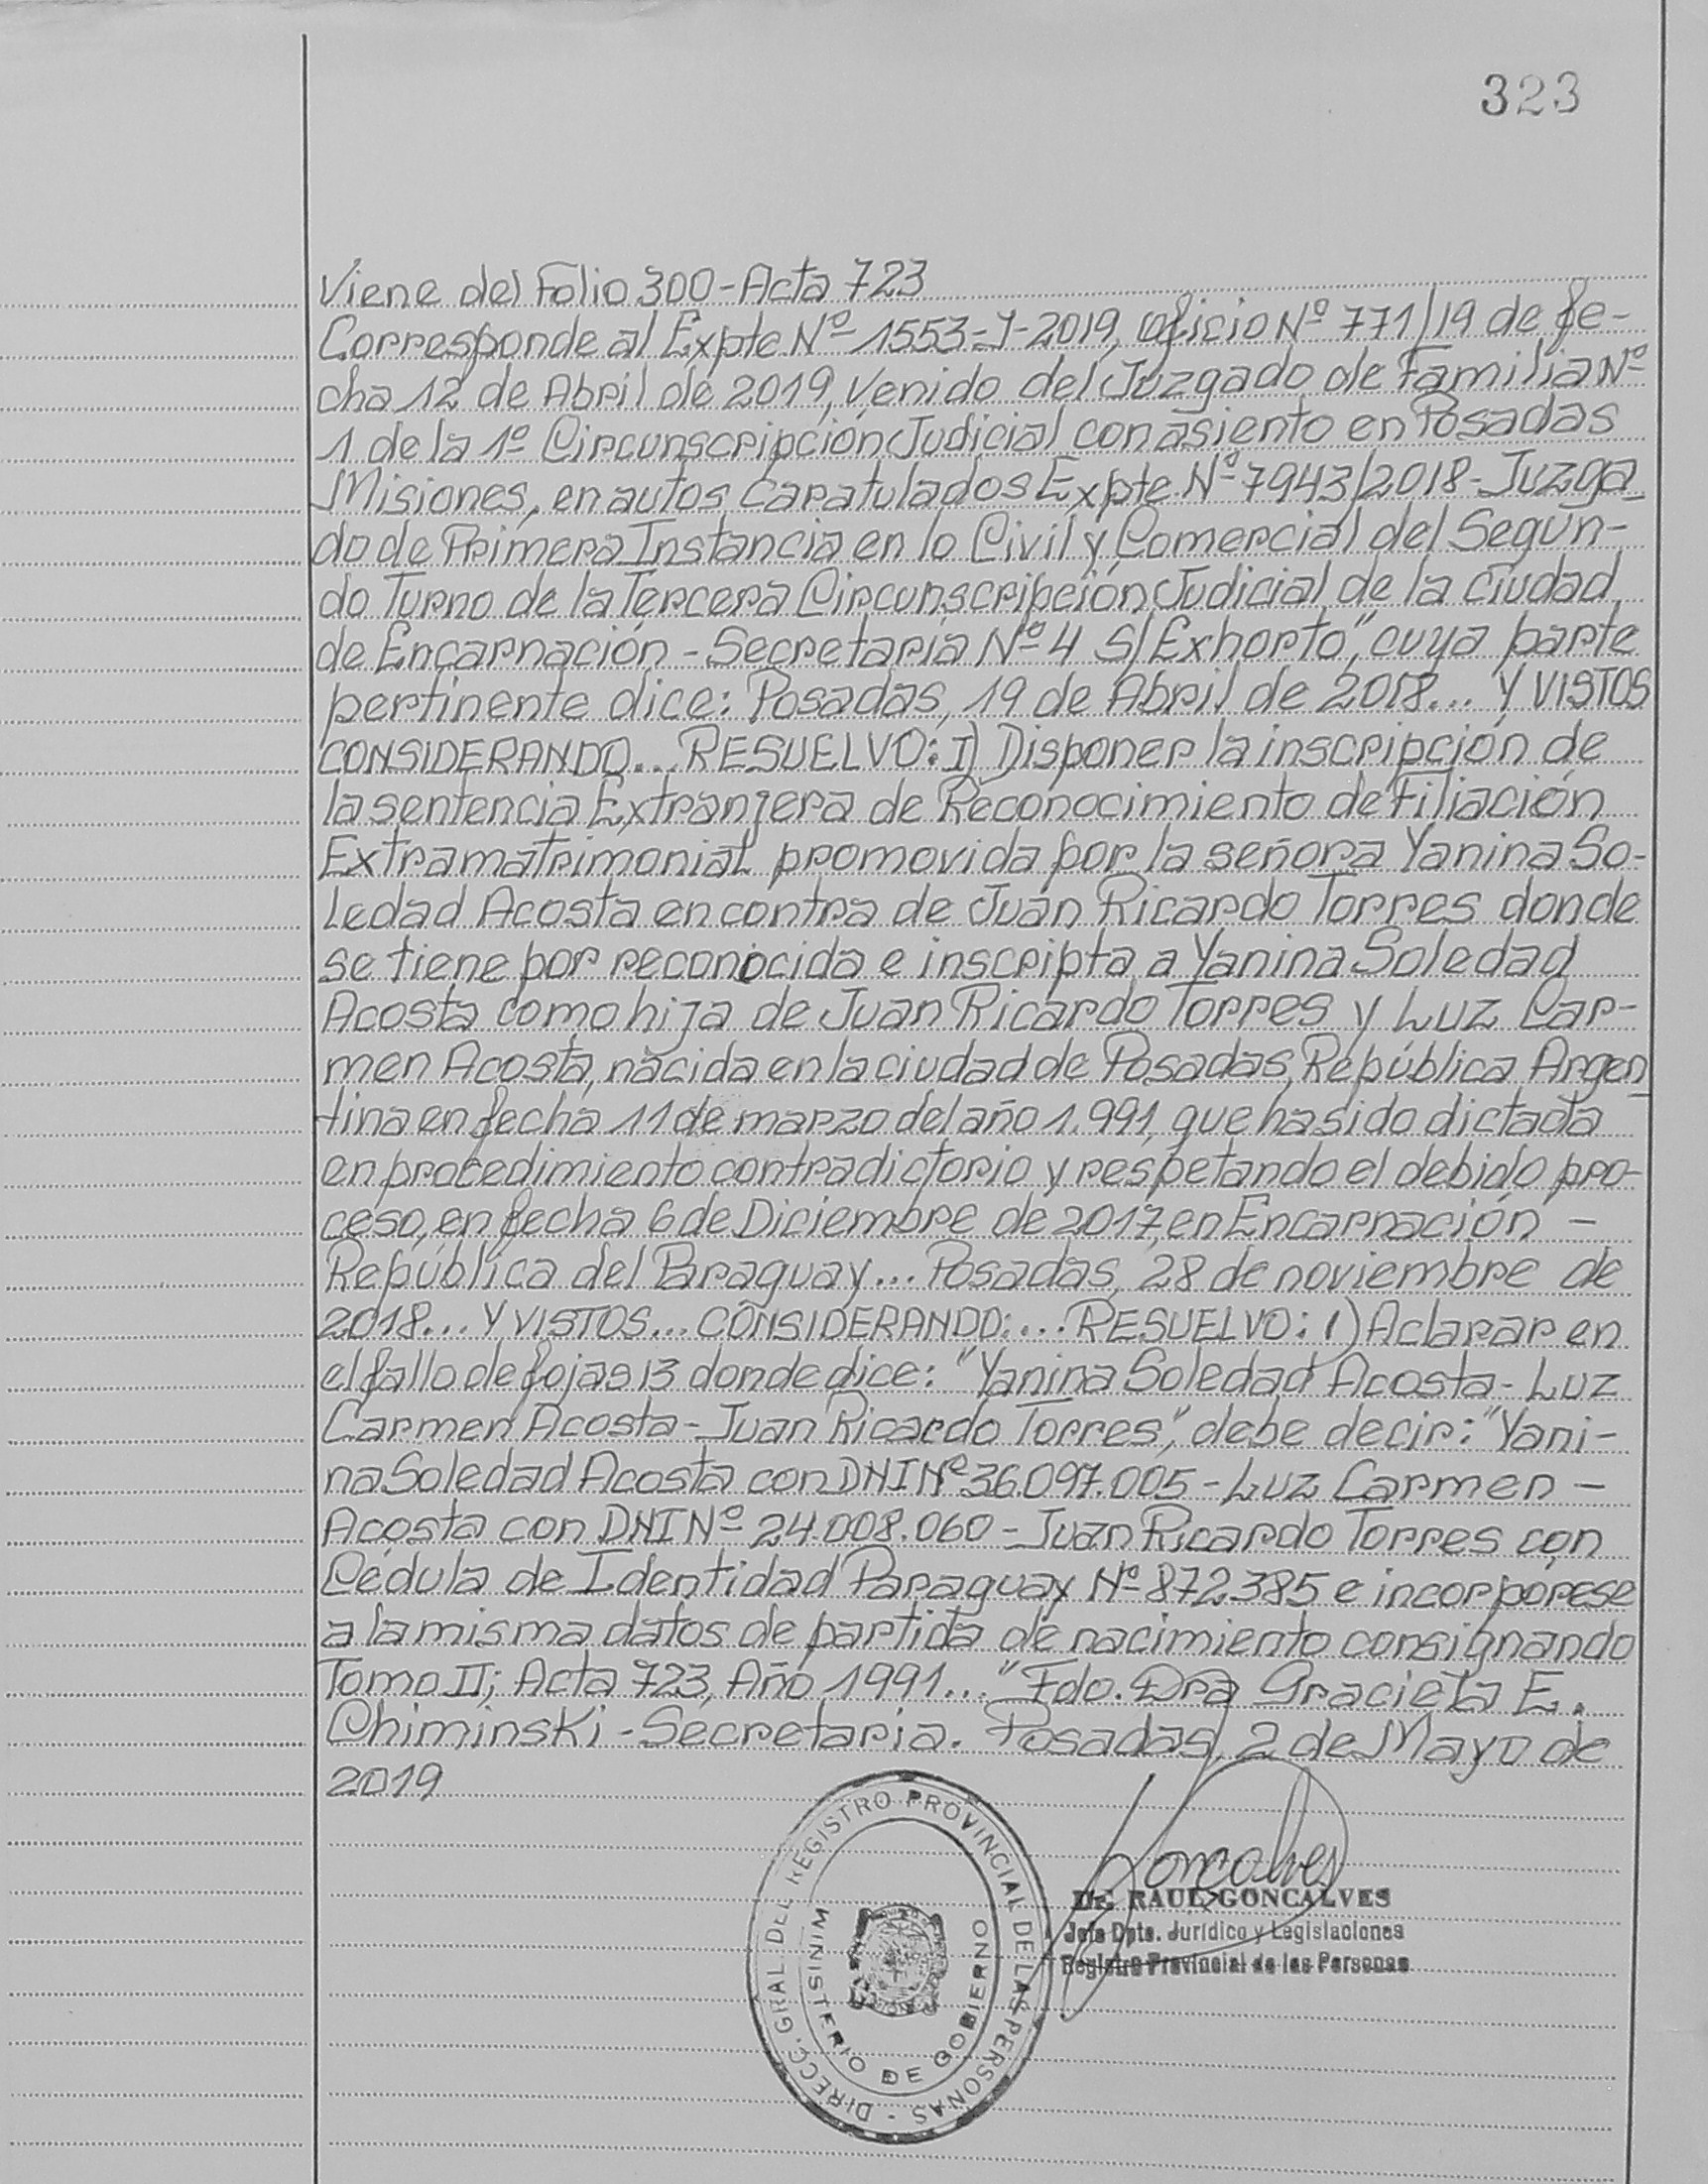 323
Viene del Folio 300-Acta 723
Corresponde al Expte Nº 1553-J-2019, oficio Nº 771/19 de fe-
cha 12 de Abril de 2019, venido del Juzgado de Familia Nº
1 de la 1º Circunscripción Judicial con asiento en Posadas
Misiones, en autos Caratulados Expte Nº 7943/2018-Juzga
do de Primera Instancia en lo Civil y Comercial del Segun-
do Turno de la Tercera Circunscripción Judicial de la Ciudad
de Encarnación - Secretaría Nº 4 S/Exhorto", cuya parte
pertinente dice: Posadas, 19 de Abril de 2018... Y VISTOS
CONSIDERANDO... RESUELVO: I) Disponer la inscripción de
la sentencia Extranjera de Reconocimiento de Filiación
Extramatrimonial promovida por la señora Yanina So-
ledad Acosta en contra de Juan Ricardo Torres donde
se tiene por reconocida e inscripta a Yanina Soledad
Acosta como hija de Juan Ricardo Torres y Luz Car-
men Acosta, nacida en la ciudad de Posadas, República Argen
tina en fecha 11 de marzo del año 1.991, que ha sido dictada
en procedimiento contradictorio y respetando el debido pro-
ceso, en fecha 6 de Diciembre de 2017, en Encarnación -
República del Paraguay... Posadas, 28 de noviembre de
2018... Y VISTOS... CONSIDERANDO:... RESUELVO: 1) Aclarar en
el fallo de fojas 13 donde dice: "Yanina Soledad Acosta - Luz
Carmen Acosta - Juan Ricardo Torres", debe decir: "Yani-
na Soledad Acosta con DNI Nº 36.097.005 - Luz Carmen -
Acosta con DNI Nº 24.008.060 - Juan Ricardo Torres con
Cédula de Identidad Paraguay Nº 872.385 e incorpórese
a la misma datos de partida de nacimiento consignando
Tomo II; Acta 723, Año 1991..." Fdo. Dra Graciela E.
Chiminski - Secretaria. Posadas, 2 de Mayo de
2019
DIRECC. GRAL. DEL REGISTRO PROVINCIAL DE LAS PERSONAS -
MINISTERIO DE GOBIERNO
Goncalves
Dr. RAUL GONCALVES
Jefe Dpto. Jurídico y Legislaciones
Registro Provincial de las Personas